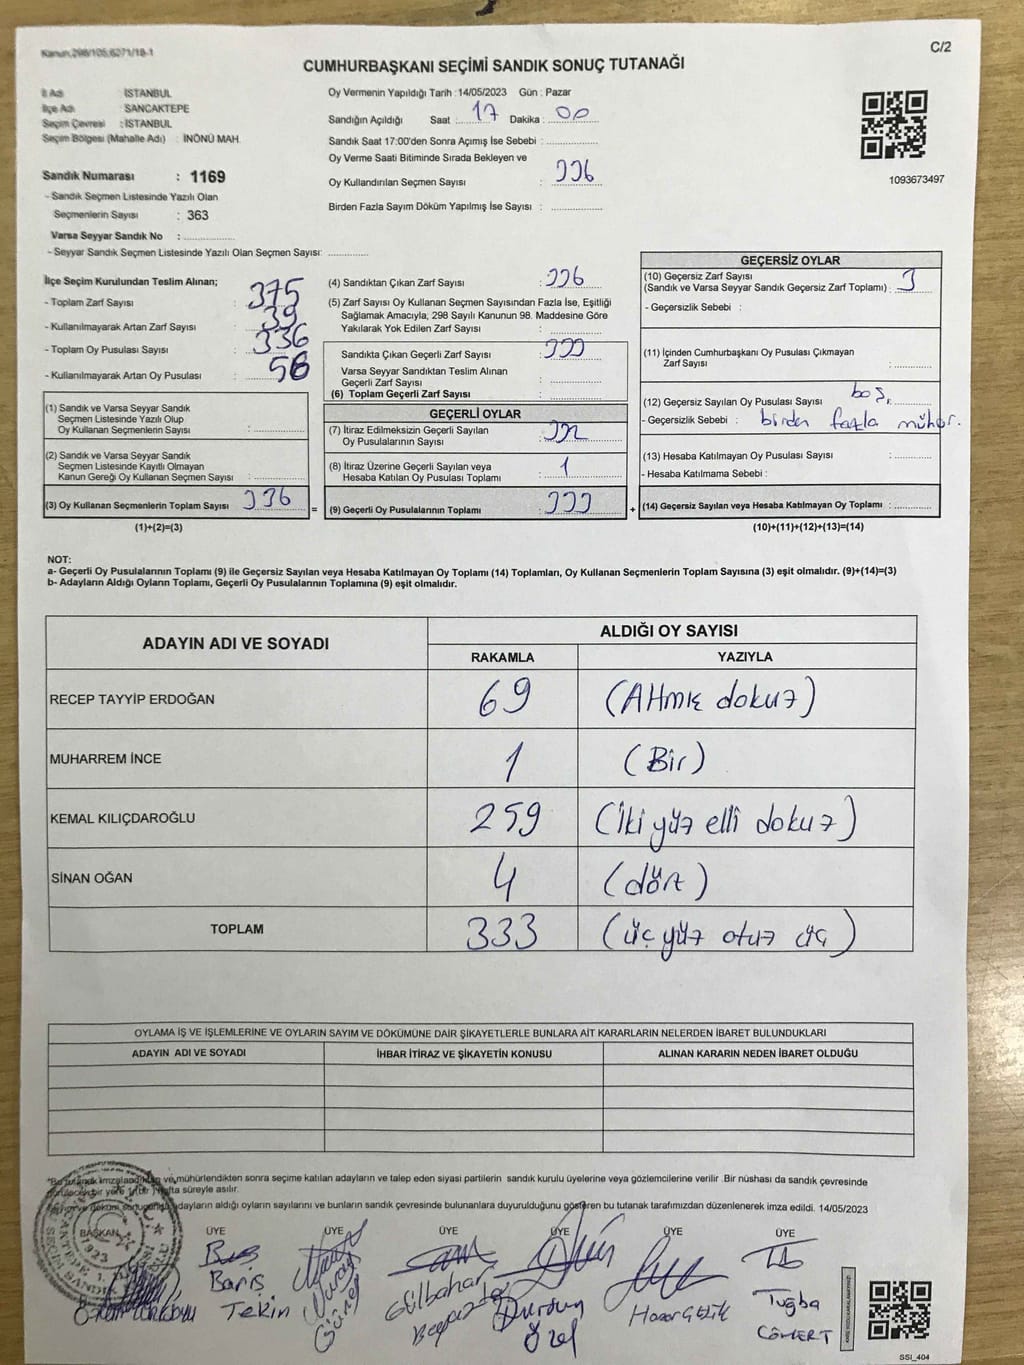 Kanun,298/105,6271/18-1
C/2
CUMHURBAŞKANI SEÇİMİ SANDIK SONUÇ TUTANAĞI
İl Adı : İSTANBUL
İlçe Adı : SANCAKTEPE
Seçim Çevresi : İSTANBUL
Seçim Bölgesi (Mahalle Adı) : İNÖNÜ MAH.
Sandık Numarası : 1169
- Sandık Seçmen Listesinde Yazılı Olan
Seçmenlerin Sayısı : 363
Varsa Seyyar Sandık No :
- Seyyar Sandık Seçmen Listesinde Yazılı Olan Seçmen Sayısı:
Oy Vermenin Yapıldığı Tarih : 14/05/2023 Gün : Pazar
Sandığın Açıldığı Saat : 17 Dakika : 00
Sandık Saat 17:00'den Sonra Açımış İse Sebebi :
Oy Verme Saati Bitiminde Sırada Bekleyen ve
Oy Kullandırılan Seçmen Sayısı : 336
Birden Fazla Sayım Döküm Yapılmış İse Sayısı :
1093673497
İlçe Seçim Kurulundan Teslim Alınan;
- Toplam Zarf Sayısı : 375
- Kullanılmayarak Artan Zarf Sayısı : 39
- Toplam Oy Pusulası Sayısı : 336
- Kullanılmayarak Artan Oy Pusulası : 58
(1) Sandık ve Varsa Seyyar Sandık
Seçmen Listesinde Yazılı Olup
Oy Kullanan Seçmenlerin Sayısı :
(2) Sandık ve Varsa Seyyar Sandık
Seçmen Listesinde Kayıtlı Olmayan
Kanun Gereği Oy Kullanan Seçmen Sayısı :
(3) Oy Kullanan Seçmenlerin Toplam Sayısı 336
(1)+(2)=(3)
(4) Sandıktan Çıkan Zarf Sayısı : 336
(5) Zarf Sayısı Oy Kullanan Seçmen Sayısından Fazla İse, Eşitliği
Sağlamak Amacıyla, 298 Sayılı Kanunun 98. Maddesine Göre
Yakılarak Yok Edilen Zarf Sayısı :
Sandıkta Çıkan Geçerli Zarf Sayısı : 333
Varsa Seyyar Sandıktan Teslim Alınan
Geçerli Zarf Sayısı :
(6) Toplam Geçerli Zarf Sayısı :
GEÇERLİ OYLAR
(7) İtiraz Edilmeksizin Geçerli Sayılan
Oy Pusulalarının Sayısı : 332
(8) İtiraz Üzerine Geçerli Sayılan veya
Hesaba Katılan Oy Pusulası Toplamı : 1
= (9) Geçerli Oy Pusulalarının Toplamı : 333
GEÇERSİZ OYLAR
(10) Geçersiz Zarf Sayısı
(Sandık ve Varsa Seyyar Sandık Geçersiz Zarf Toplamı) : 3
- Geçersizlik Sebebi :
(11) İçinden Cumhurbaşkanı Oy Pusulası Çıkmayan
Zarf Sayısı :
(12) Geçersiz Sayılan Oy Pusulası Sayısı : boş,
- Geçersizlik Sebebi : birden fazla mühür.
(13) Hesaba Katılmayan Oy Pusulası Sayısı :
- Hesaba Katılmama Sebebi :
+ (14) Geçersiz Sayılan veya Hesaba Katılmayan Oy Toplamı :
(10)+(11)+(12)+(13)=(14)
NOT:
a- Geçerli Oy Pusulalarının Toplamı (9) ile Geçersiz Sayılan veya Hesaba Katılmayan Oy Toplamı (14) Toplamları, Oy Kullanan Seçmenlerin Toplam Sayısına (3) eşit olmalıdır. (9)+(14)=(3)
b- Adayların Aldığı Oyların Toplamı, Geçerli Oy Pusulalarının Toplamına (9) eşit olmalıdır.
ADAYIN ADI VE SOYADI ALDIĞI OY SAYISI
RAKAMLA YAZIYLA
RECEP TAYYİP ERDOĞAN 69 (Altmış dokuz)
MUHARREM İNCE 1 (Bir)
KEMAL KILIÇDAROĞLU 259 (İki yüz elli dokuz)
SİNAN OĞAN 4 (dört)
TOPLAM 333 (üç yüz otuz üç)
OYLAMA İŞ VE İŞLEMLERİNE VE OYLARIN SAYIM VE DÖKÜMÜNE DAİR ŞİKAYETLERLE BUNLARA AİT KARARLARIN NELERDEN İBARET BULUNDUKLARI
ADAYIN ADI VE SOYADI İHBAR İTİRAZ VE ŞİKAYETİN KONUSU ALINAN KARARIN NEDEN İBARET OLDUĞU
ve mühürlendikten sonra seçime katılan adayların ve talep eden siyasi partilerin sandık kurulu üyelerine veya gözlemcilerine verilir .Bir nüshası da sandık çevresinde
hafta süreyle asılır.
adayların aldığı oyların sayılarını ve bunların sandık çevresinde bulunanlara duyurulduğunu gösteren bu tutanak tarafımızdan düzenlenerek imza edildi. 14/05/2023
BAŞKAN ÜYE ÜYE ÜYE ÜYE ÜYE ÜYE
1923
Barış Tekin
Nuray Güneş
Gülbahar
Dursun Özel
Hazar ÇELİK
Tuğba CÖMERT
SSI_404